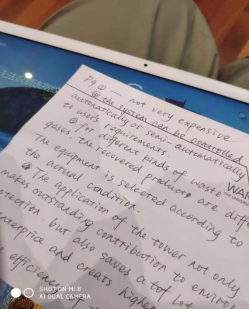 Pg ① — not very expensive
② the system can be controlled
automatically or semi-automatically
to users requirements.
③ For different kinds of waste
gases the recovered products are diffe
The equipment is selected according to
the actual condition.
④ The application of the tower not only
makes outstanding contribution to enviro
otection but also saves a lot
enterprice and creats higher
efficien
WAR
SHOT ON MI 8
AI DUAL CAMERA